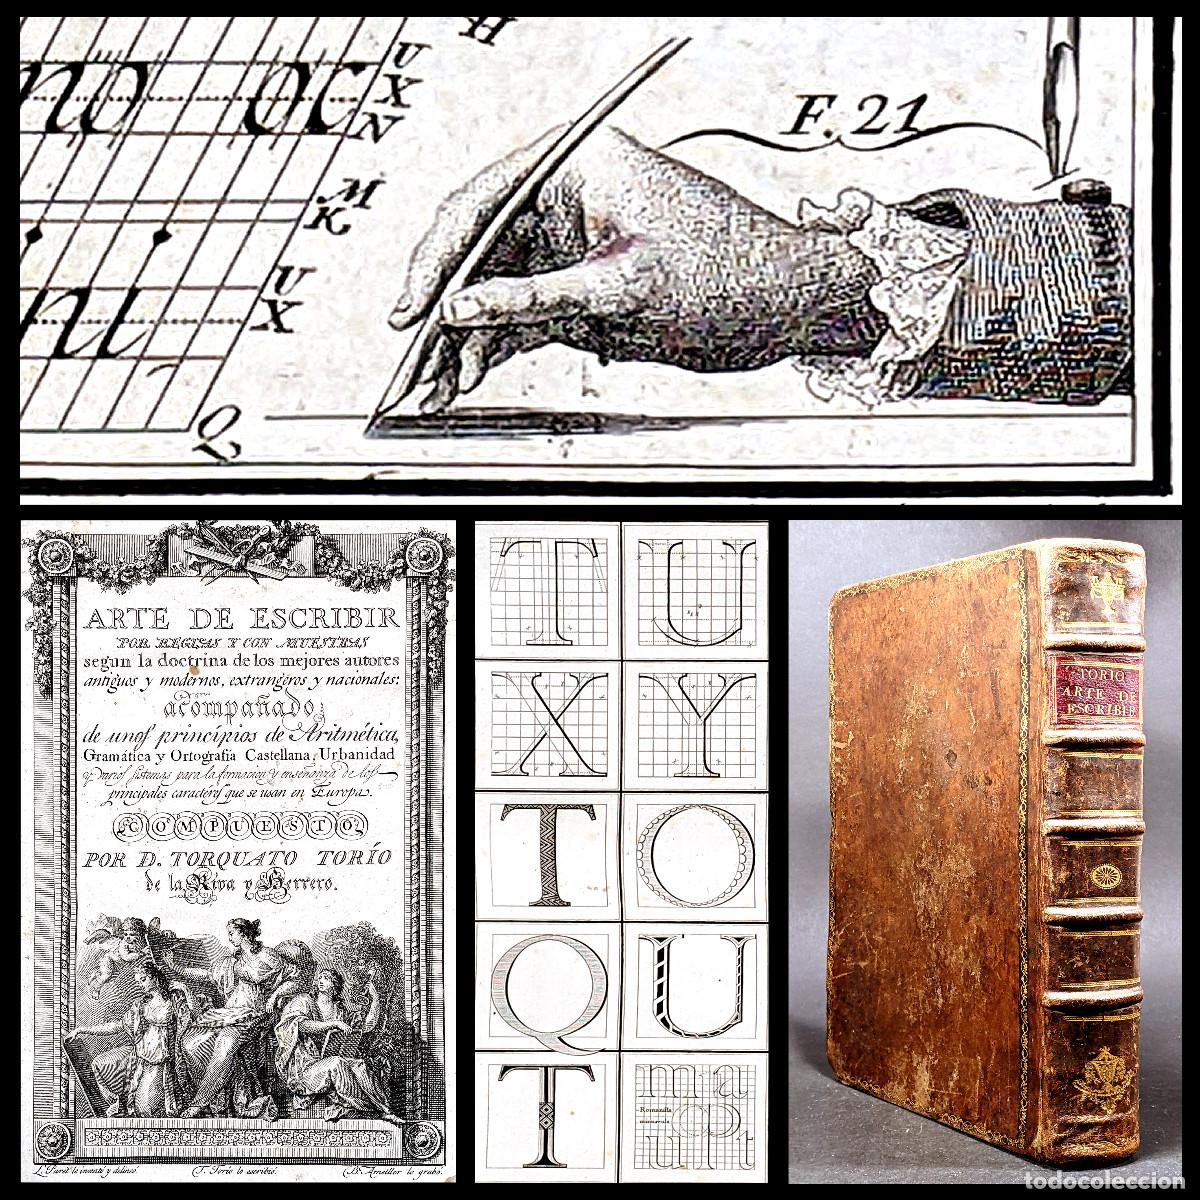 no oc
U
X
N
H
M
K
ni
U
X
Q
F. 21
ARTE DE ESCRIBIR
POR REGLAS Y CON MUESTRAS
segun la doctrina de los mejores autores
antiguos y modernos, extrangeros y nacionales:
acompañado
de unos principios de Aritmética,
Gramática y Ortografía Castellana, Urbanidad
y varios sistemas para la formacion y enseñanza de los
principales caracteres que se usan en Europa.
COMPUESTO
POR D. TORQUATO TORÍO
de la Riva y Herrero.
T. Torio lo escribió.
T U
X Y
T O
Q U
T
m a
Romanilla
u p t
TORIO
ARTE DE
ESCRIBIR
todocoleccion